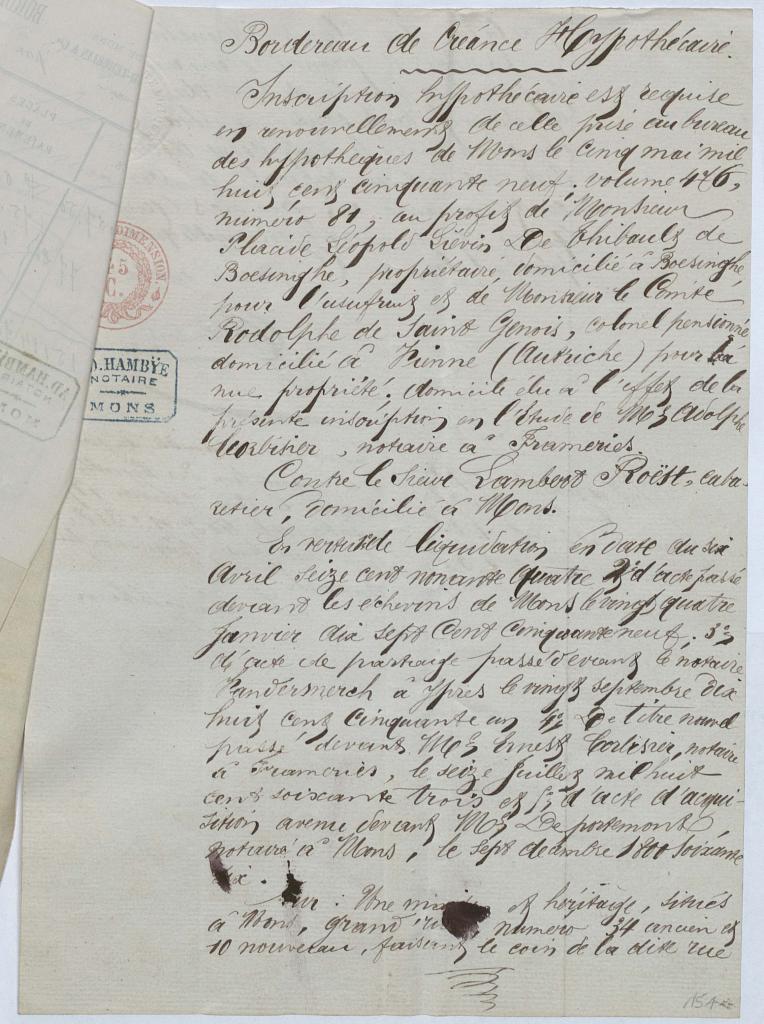 Bordereau de Créance Hypothécaire.
Inscription hypothécaire est requise
en renouvellement de celle prise au bureau
des hypothèques de Mons le cinq mai mil
huit cent cinquante neuf. volume 476,
numéro 81, au profit de Monsieur
Placide Léopold Liévin De Thibault de
Boesinghe, propriétaire, domicilié à Boesinghe
pour l'usufruit et de Monsieur le Comte
Rodolphe de Saint Genois, colonel pensionné
domicilié à Vienne (Autriche) pour la
nue propriété. domicile élu à l'effet de la
présente inscription en l'étude de Me Adolphe
Corbisier, notaire à Frameries.
Contre le Sieur Lambert Roëst, caba-
retier, domicilié à Mons.
En vertu de liquidation en date du six
Avril seize cent nonante quatre 2° d'acte passé
devant les échevins de Mons le vingt quatre
Janvier dix sept Cent Cinquante neuf, 3°
d'acte de partage passé devant le notaire
Vandermerch à Ypres le vingt septembre dix
huit cent cinquante un 4° De titre nouvel
passé devant Me Ernest Corbisier, notaire
à Frameries, le seize Juillet mil huit
cent soixante trois et 5° d'acte d'acqui-
sition avenu devant Me De portemont
notaire à Mons, le sept décembre 1800 soixante
six.
Sur : Une et héritage, situés
à Mons, grand numéro 34 ancien et
10 nouveau, faisant le coin de la dite rue
DIMENSION.
45
C.
AD. HAMBYE
NOTAIRE
MONS
AD. HAMBYE
MONS
154